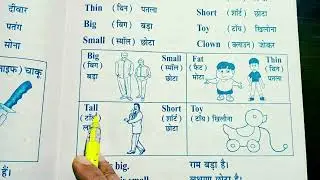 दीवार
पतंग
सोना
चाकू
हैं।
Thin (थिन) पतला
Big (बिग) बड़ा
Small (स्मॉल) छोटा
Short (शॉर्ट) छोटा
Toy (टॉय) खिलौना
Clown (क्लाउन) जोकर
Big (बिग) बड़ा
Small (स्मॉल) छोटा
Fat (फैट) मोटा
Thin (थिन) पतला
Tall
Short (शॉर्ट) छोटा
Toy (टॉय) खिलौना
big.
राम बड़ा है।